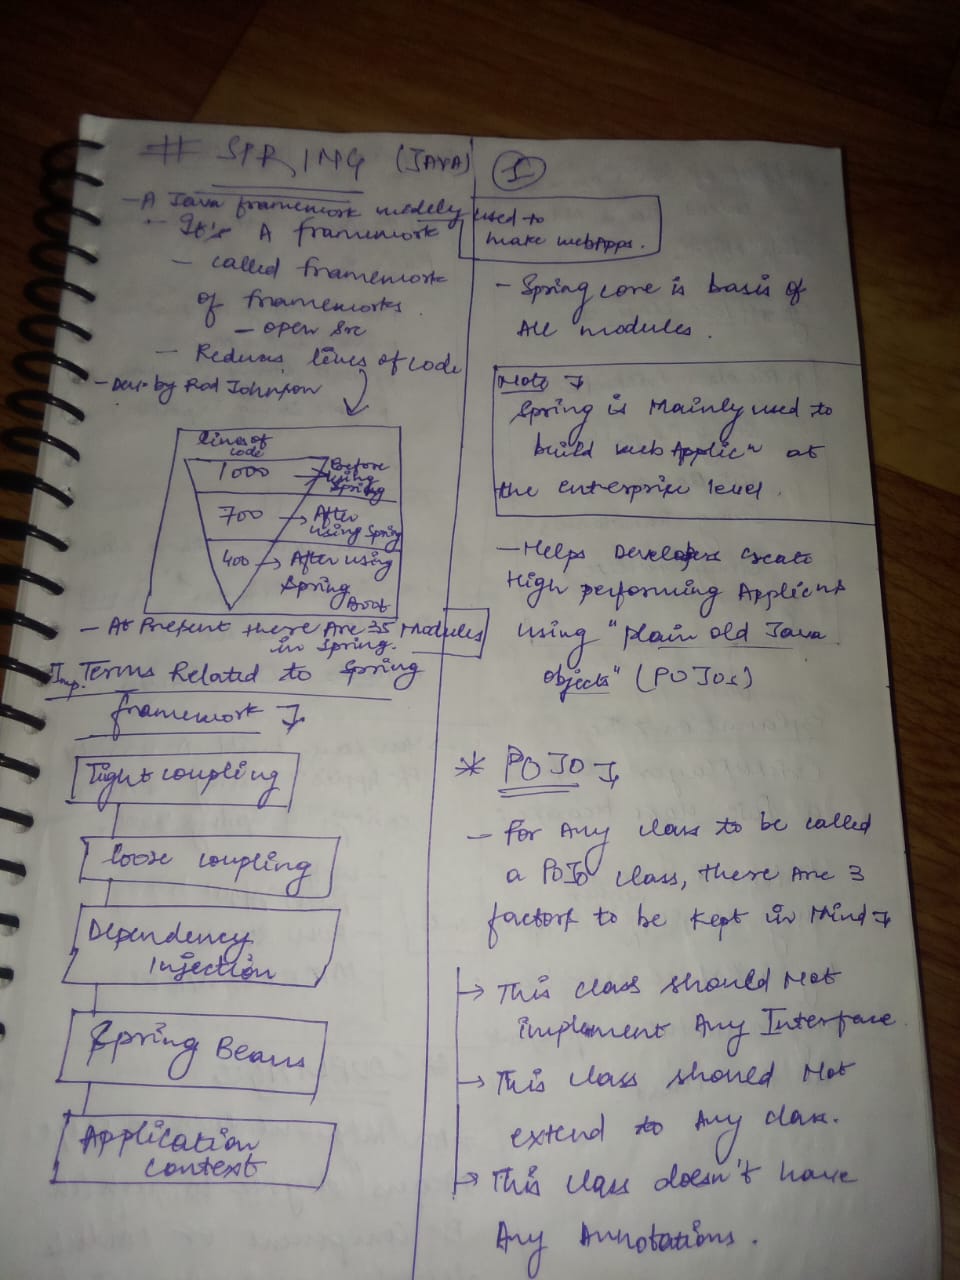 # SPRING (JAVA)
1
- A Java framework widely used to
make webApps.
- It's A framework
- called framework
of frameworks.
- open src
- Reduces lines of code
- Dev. by Rod Johnson
lines of
code
1000 → Before
using
Spring
700 → After
using Spring
400 → After using
Spring
Boot
- At Present there Are 35 Modules
in Spring.
Imp. Terms Related to Spring
framework
Tight coupling
loose coupling
Dependency
Injection
Spring Beans
Application
context
- Spring core is basis of
All modules.
Note
Spring is Mainly used to
build web Applicⁿ at
the enterprise level.
- Helps Developers create
High performing Applicns
using "plain old Java
objects" (POJOs)
* POJO
- For Any class to be called
a POJO class, there are 3
factors to be kept in Mind
→ This class should Not
implement Any Interface
→ This class should Not
extend to Any class.
→ This class doesn't have
Any Annotations.